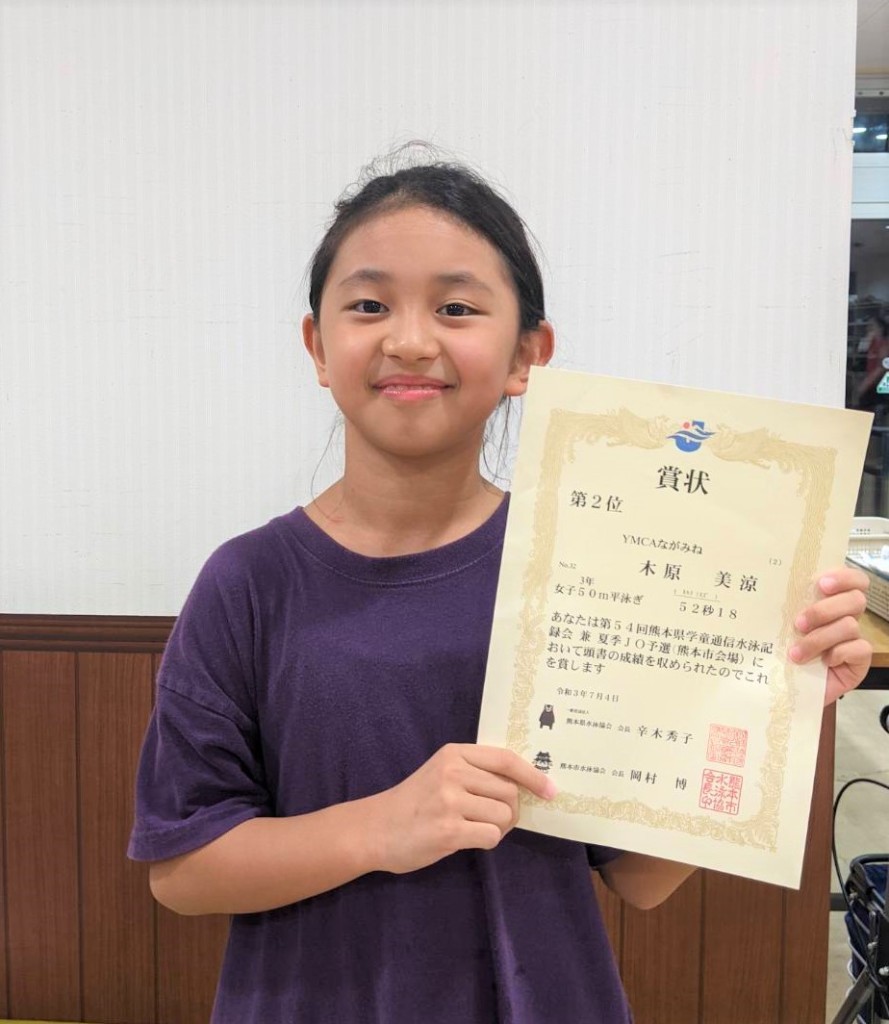 賞状
第2位
YMCAながみね
(2)
No.32
木原 美涼
3年
女子50m平泳ぎ
52秒18
あなたは第54回熊本県学童通信水泳記
録会 兼 夏季JO予選(熊本市会場)に
おいて頭書の成績を収められたのでこれ
を賞します
令和3年7月4日
一般社団法人
熊本県水泳協会 会長 辛木秀子
熊本市水泳協会 会長 岡村 博